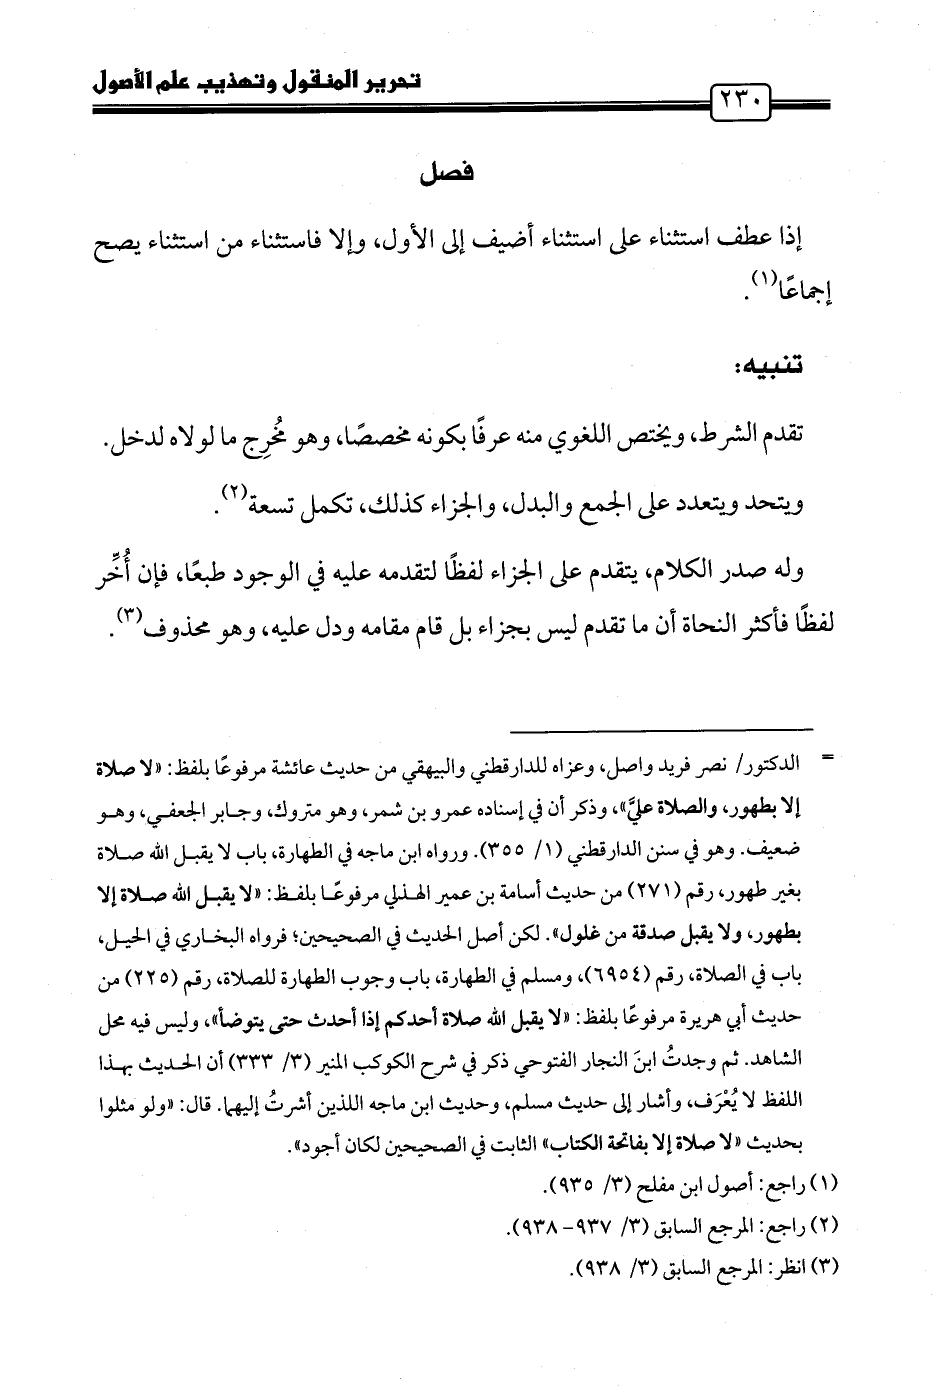 تحرير المنقول وتهذيب علم الأصول
٢٣٠
فصل
إذا عطف استثناء على استثناء أضيف إلى الأول، وإلا فاستثناء من استثناء يصح
إجماعًا(١).
تنبيه:
تقدم الشرط، ويختص اللغوي منه عرفًا بكونه مخصصًا، وهو مُخرِج ما لولاه لدخل.
ويتحد ويتعدد على الجمع والبدل، والجزاء كذلك، تكمل تسعة(٢).
وله صدر الكلام، يتقدم على الجزاء لفظًا لتقدمه عليه في الوجود طبعًا، فإن أُخِّر
لفظًا فأكثر النحاة أن ما تقدم ليس بجزاء بل قام مقامه ودل عليه، وهو محذوف(٣).
= الدكتور/ نصر فريد واصل، وعزاه للدارقطني والبيهقي من حديث عائشة مرفوعًا بلفظ: «لا صلاة
إلا بطهور، والصلاة عليَّ»، وذكر أن في إسناده عمرو بن شمر، وهو متروك، وجابر الجعفي، وهو
ضعيف. وهو في سنن الدارقطني (١/ ٣٥٥). ورواه ابن ماجه في الطهارة، باب لا يقبل الله صلاة
بغير طهور، رقم (٢٧١) من حديث أسامة بن عمير الهذلي مرفوعًا بلفظ: «لا يقبل الله صلاة إلا
بطهور، ولا يقبل صدقة من غلول». لكن أصل الحديث في الصحيحين؛ فرواه البخاري في الحيل،
باب في الصلاة، رقم (٦٩٥٤)، ومسلم في الطهارة، باب وجوب الطهارة للصلاة، رقم (٢٢٥) من
حديث أبي هريرة مرفوعًا بلفظ: «لا يقبل الله صلاة أحدكم إذا أحدث حتى يتوضأ»، وليس فيه محل
الشاهد. ثم وجدتُ ابنَ النجار الفتوحي ذكر في شرح الكوكب المنير (٣/ ٣٣٣) أن الحديث بهذا
اللفظ لا يُعْرَف، وأشار إلى حديث مسلم، وحديث ابن ماجه اللذين أشرتُ إليهما. قال: «ولو مثلوا
بحديث «لا صلاة إلا بفاتحة الكتاب» الثابت في الصحيحين لكان أجود».
(١) راجع: أصول ابن مفلح (٣/ ٩٣٥).
(٢) راجع: المرجع السابق (٣/ ٩٣٧- ٩٣٨).
(٣) انظر: المرجع السابق (٣/ ٩٣٨).